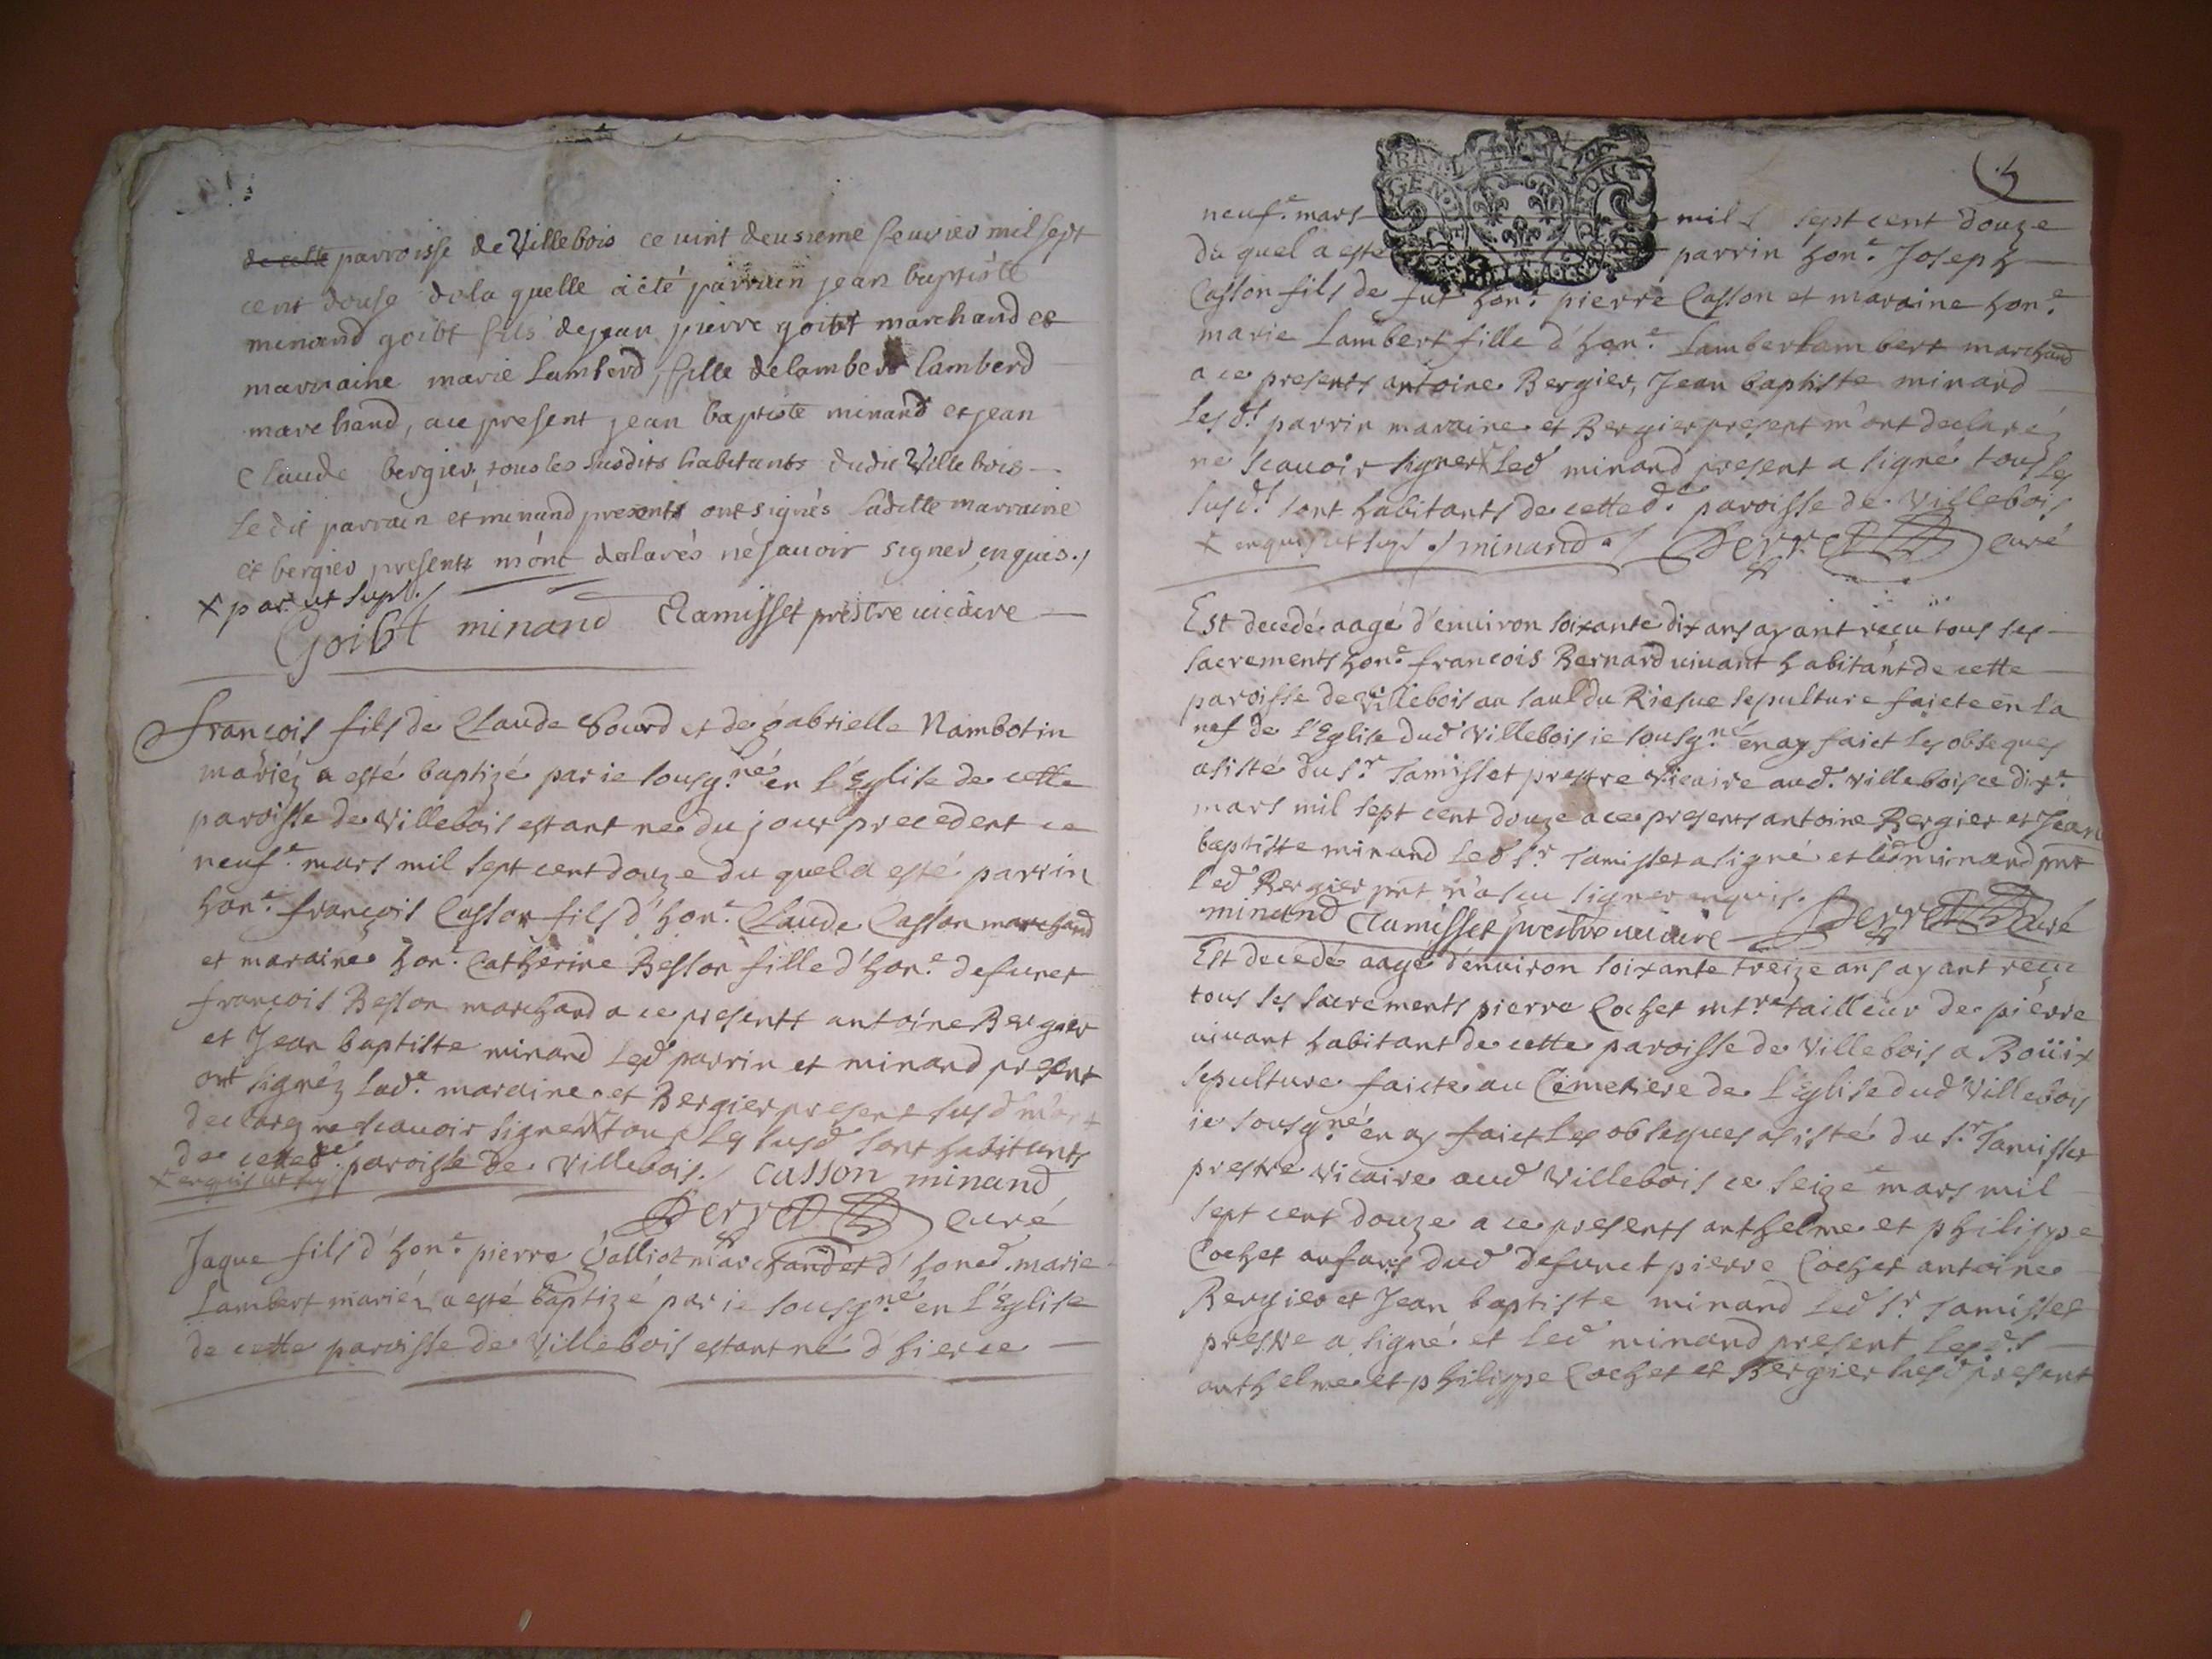 de cette parroisse de Villebois ce vint deusieme feuvier mil sept
cent douse de la quelle a été parrain jean baptiste
minand goibt fils de jean pierre goibt marchand et
marraine marie Lamberd, fille de lamber lamberd
marchand, a ce present jean baptiste minand et jean
Claude bergier, tous les susdits habitants dudit Villebois
Le dit parrain et minand presents ont signés laditte marraine
et bergier presents m'ont declarés ne sauoir signer enquis./
x par. ut supr./
Goibt minand Tamisset prestre uicaire
françois fils de Claude Sourd et de gabrielle Nambotin
mariéz a esté baptizé par ie sousg.né en l'Eglise de cette
paroisse de Villebois estant ne du jour precedent ce
neuf.e mars mil sept cent douze du quel a esté parrin
hon.e françois Casson fils d'hon.e Claude Casson marchand
et maraine hon.e Catherine Besson fille d'hon.e defunct
françois Besson marchand a ce presentt antoine Bergier
et Jean baptiste minand Led parrin et minand present
ont signéz Lad.e maraine et Bergier present susd m'ont
declaréz ne scauoir signer x tous les susd sont habitants
de cetted.e paroisse de Villebois./ casson minand
x enquis ut sup
Perret curé
Jaque fils d'hon.e pierre Galliot marchand et d'hone.e marie
Lambert mariéz a esté baptizé par ie sousg.né en l'Eglise
de cette paroisse de Villebois estant né d'hier ce
neuf.e mars mil sept cent douze
du quel a esté parrin hon.e Joseph
Casson fils de fut hon.e pierre Casson et maraine hon.e
marie Lambert fille d'hon.e Lambert lambert marchand
a ce presents antoine Bergier, Jean baptiste minand
Les d.t parrin maraine et Bergier present m'ont declaréz
ne scauoir signer x Led minand present a signé tous les
susd.t sont habitants de cetted.e paroisse de Villebois
x enquis ut supr ./ minand ./ Perret curé
Est decedé aagé d'enuiron soixante dix ans ayant reçu tous ses
sacrements hon.e francois Bernard uiuant habitant de cette
paroisse de Villebois au saul du Rie sue sepulture faicte en la
nef de l'Eglise dud Villebois ie sousg.né en ay faict les obseques
asisté du s.r Tamisset prestre vicaire aud. Villebois ce dix.e
mars mil sept cent douze a ce presents antoine Bergier et Jean
baptiste minand Led s.r Tamisset a signé et led minand pnt
Led Bergier pnt n'a sçu signer enquis.
minand Tamisset prestre uicaire Perret Curé
Est decedé aagé d'enuiron soixante treize ans ayant reçu
tous ses sacrements pierre Cochet mt.re tailleur de pierre
uiuant habitant de cette paroisse de Villebois a Boüix
sepulture faicte au Cimetiere de l'Eglise dud Villebois
ie sousg.né en ay faict les obseques asisté du s.r Tamisset
prestre vicaire aud Villebois ce seize mars mil
sept cent douze a ce presents anthelme et philippe
Cochet anfans dud defunct pierre Cochet antoine
Bergier et Jean baptiste minand Led s.r Tamisset
prestre a signé et Led minand present Lesd.s
anthelme et philippe Cochet et Bergier susd present